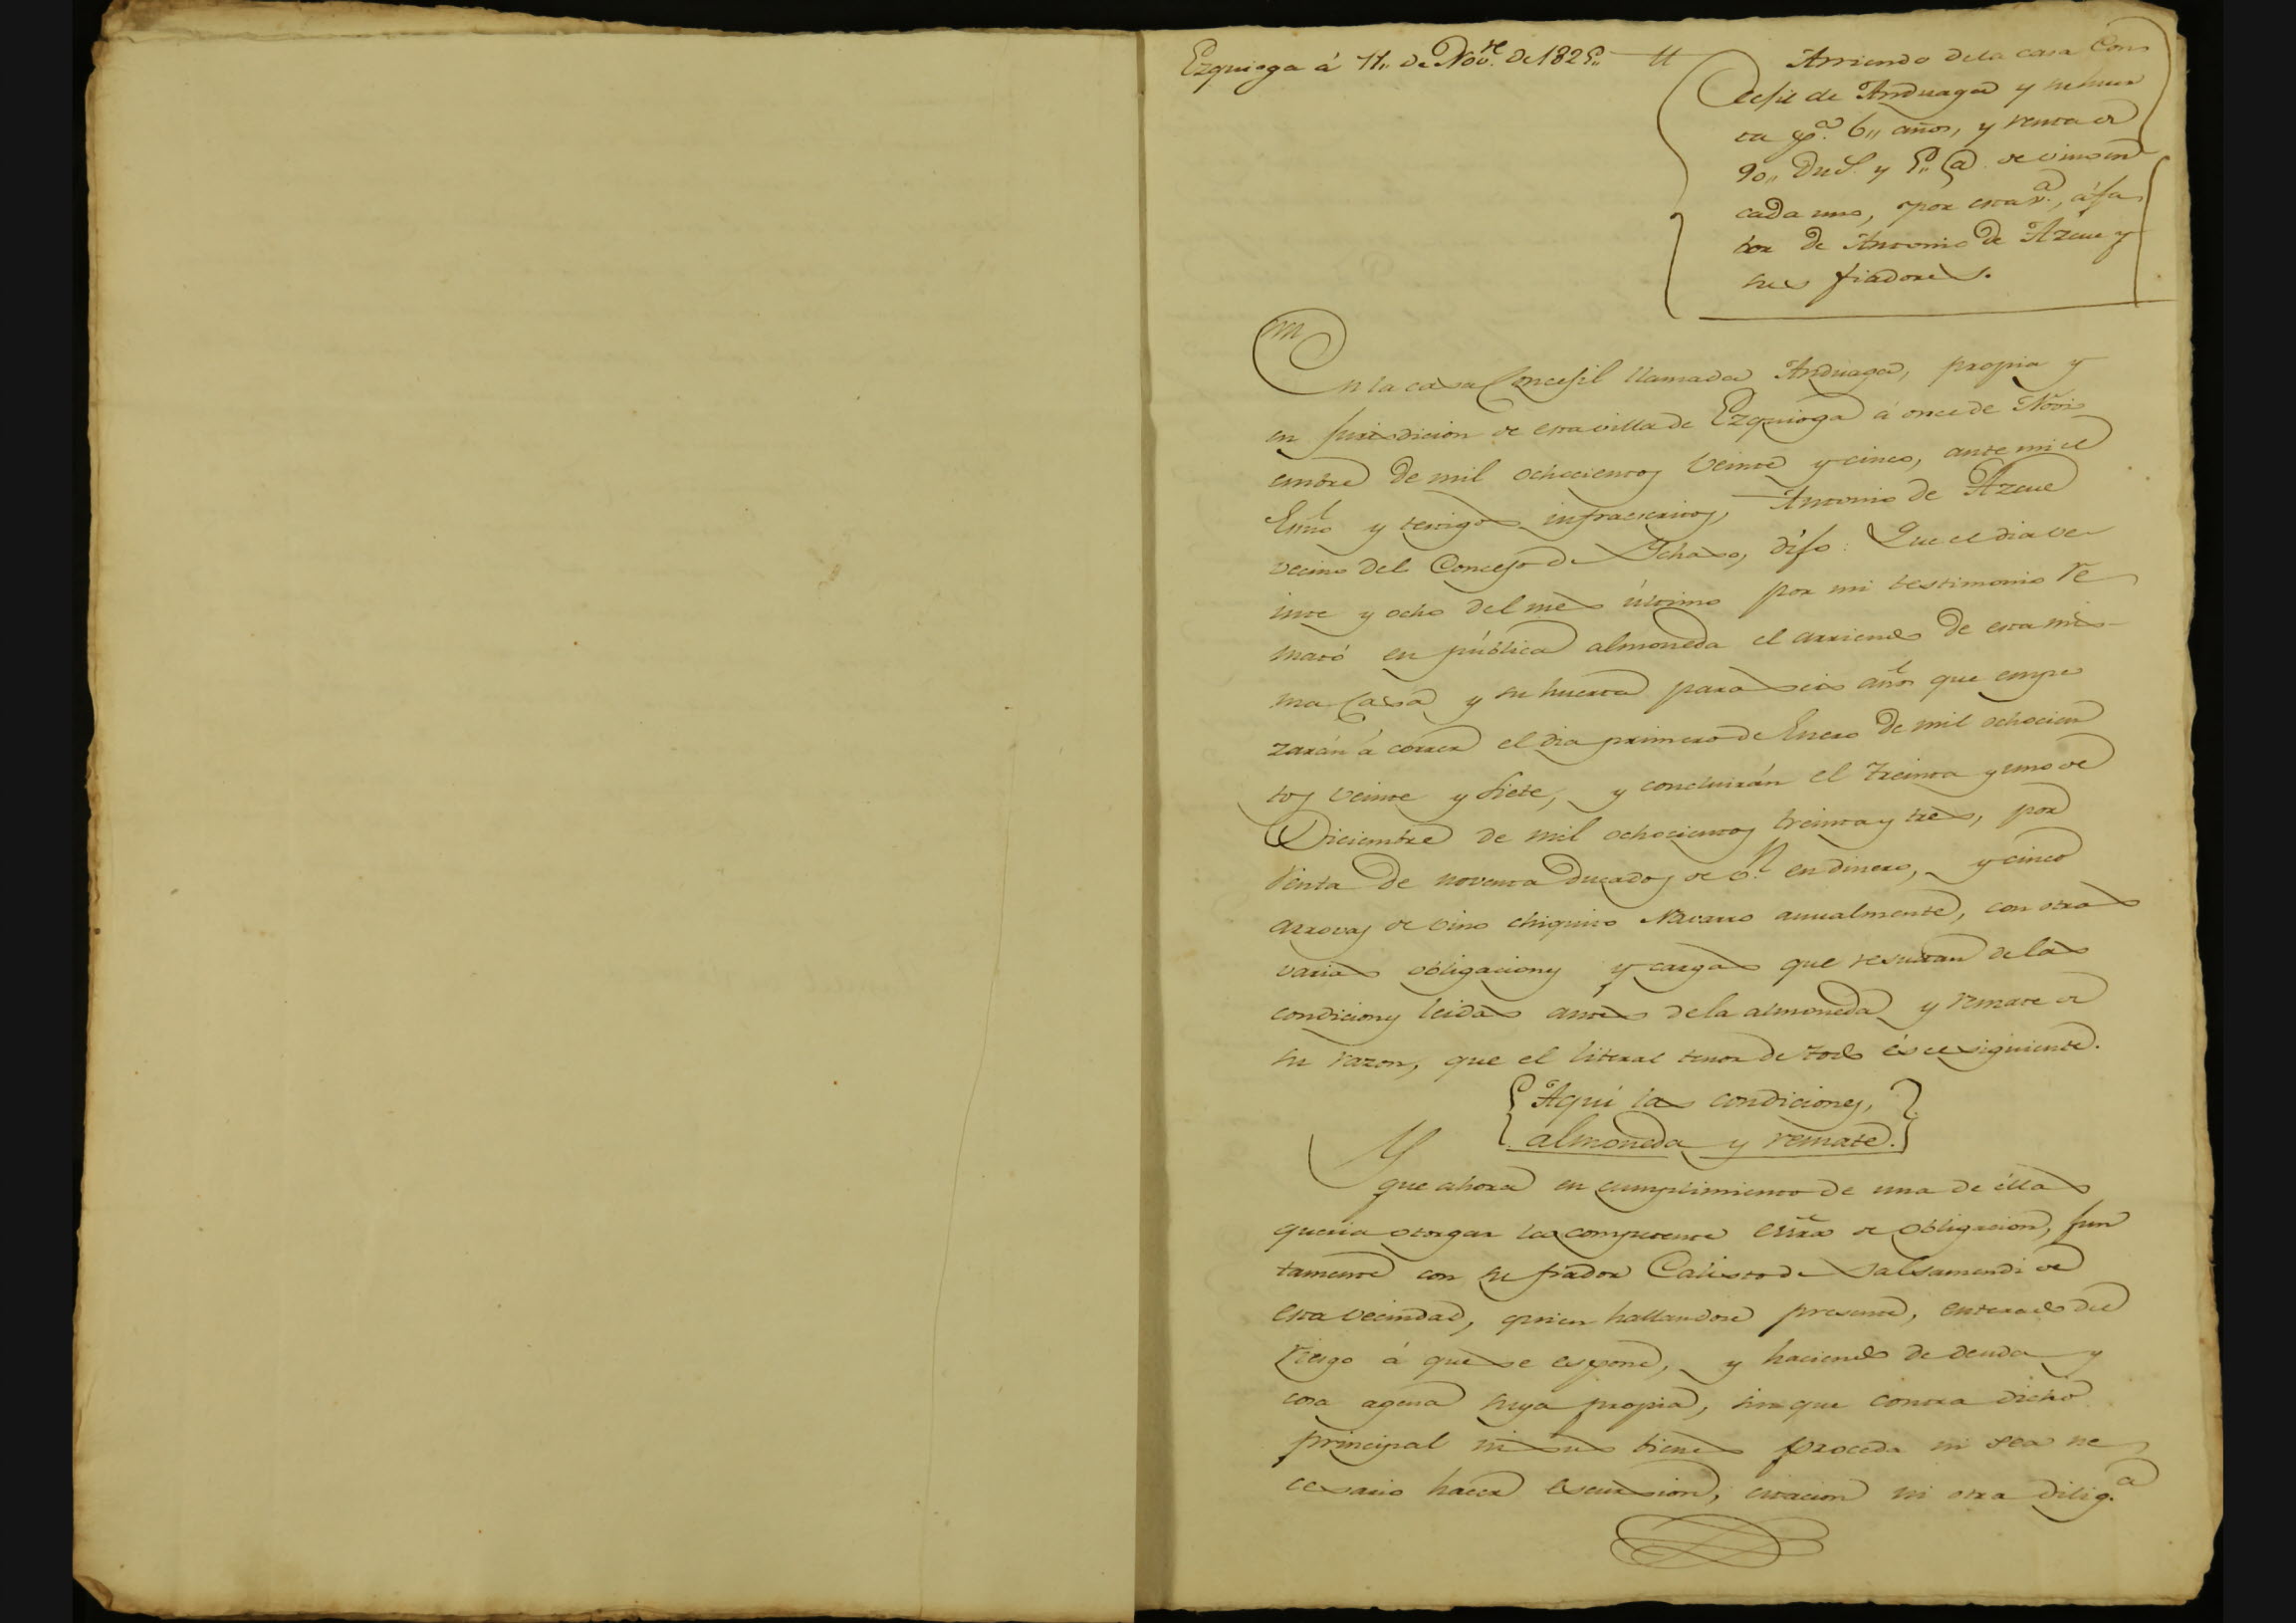 Ezquioga á 11,, de Nov.re de 1825,,
Arriendo dela casa Con
cejil de Anduaga y su huer
ta p.a 6,, años, y renta de
90,, Duc.s y 5,, @ de vino en
cada uno, por esta v.a, á fa
bor de Antonio de Azcue y
sus fiadores.
En la casa Concejil llamada Anduaga, propia y
en jurisdicion de esta villa de Ezquioga á once de Novi
embre de mil ochocientos veinte y cinco, ante mi el
Esno y testigos infraescritos, Antonio de Azcue
vecino del Concejo de Ichaso, dijo: Que el dia ve
inte y ocho del mes último por mi testimonio re
mató en pública almoneda el arriendo de esta mis
ma Casa y su huerta para seis años que empe
zarán á correr el dia primero de Enero de mil ochocien
tos veinte y siete, y concluirán el treinta y uno de
Diciembre de mil ochocientos treinta y tres, por
renta de noventa Ducados de v.n en dinero, y cinco
arrovas de vino chiquito Navarro anualmente, con otras
varias obligaciones y cargas que resultan delas
condiciones leidas antes dela almoneda y remate de
su razon, que el literal tenor de todo és el siguiente.
Aqui las condiciones,
almoneda y remate.
Y
que ahora en cumplimiento de una de éllas
queria otorgar la competente essra de obligacion, jun
tamente con su fiador Calisto de Salsamendi de
esta vecindad, quien hallandose presente, enterado del
riesgo á que se espone, y haciendo de deuda y
cosa agena suya propia, sin que contra dicho
principal ni sus bienes proceda ni sea ne
cesario hacer escursion, citacion ni otra dilig.a